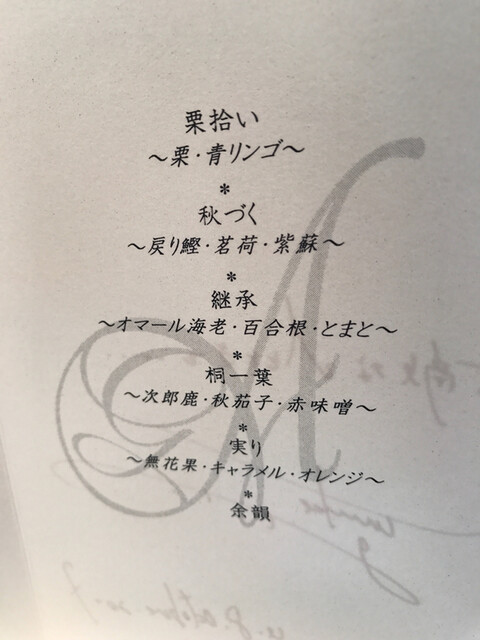 栗拾い
～栗・青リンゴ～
*
秋づく
～戻り鰹・茗荷・紫蘇～
*
継承
～オマール海老・百合根・とまと～
*
桐一葉
～次郎鹿・秋茄子・赤味噌～
*
実り
～無花果・キャラメル・オレンジ～
*
余韻